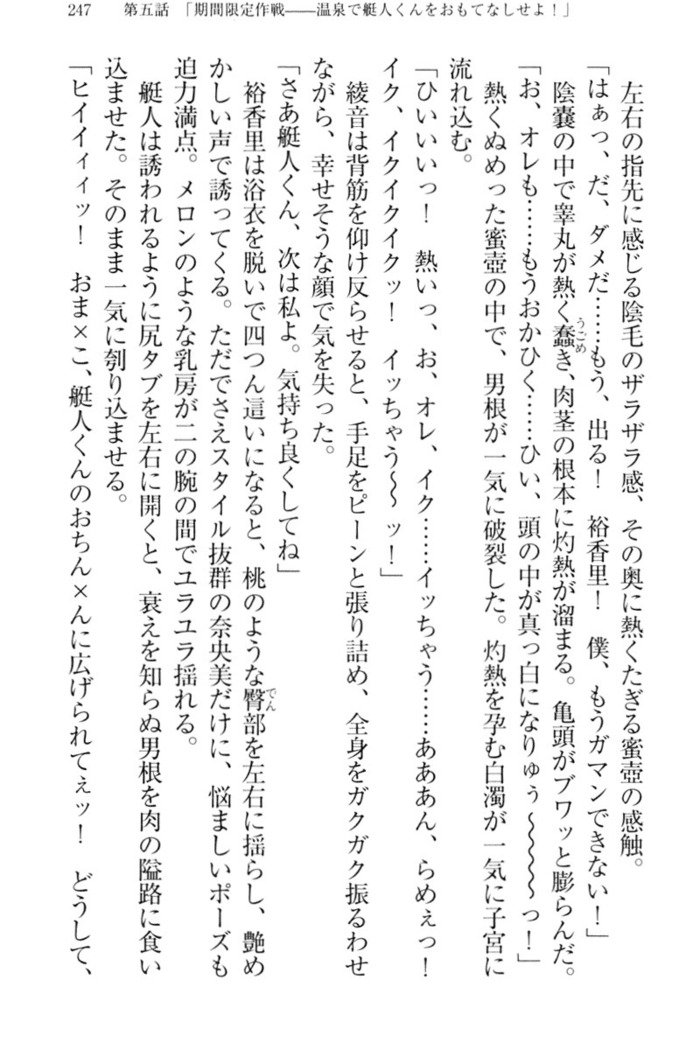 247 第五話 「期間限定作戦――温泉で艇人くんをおもてなしせよ!」
左右の指先に感じる陰毛のザラザラ感、その奥に熱くたぎる蜜壺の感触。
「はぁっ、だ、ダメだ……もう、出る! 裕香里! 僕、もうガマンできない!」
うごめ
陰嚢の中で睾丸が熱く蠢き、肉茎の根本に灼熱が溜まる。亀頭がブワッと膨らんだ。
「お、オレも……もうおかひく……ひい、頭の中が真っ白になりゅぅ〜〜〜〜っ!」
熱くぬめった蜜壺の中で、男根が一気に破裂した。灼熱を孕む白濁が一気に子宮に
流れ込む。
「ひいいいっ! 熱いっ、お、オレ、イク……イッちゃう……あああん、らめぇっ!
イク、イクイクイクッ! イッちゃう〜〜ッ!」
綾音は背筋を仰け反らせると、手足をピーンと張り詰め、全身をガクガク振るわせ
ながら、幸せそうな顔で気を失った。
「さあ艇人くん、次は私よ。気持ち良くしてね」
でん
裕香里は浴衣を脱いで四つん這いになると、桃のような臀部を左右に揺らし、艶め
かしい声で誘ってくる。ただでさえスタイル抜群の奈央美だけに、悩ましいポーズも
迫力満点。メロンのような乳房が二の腕の間でユラユラ揺れる。
艇人は誘われるように尻タブを左右に開くと、衰えを知らぬ男根を肉の隘路に食い
込ませた。そのまま一気に刳り込ませる。
「ヒイイィィッ! おま×こ、艇人くんのおちん×んに広げられてぇッ! どうして、